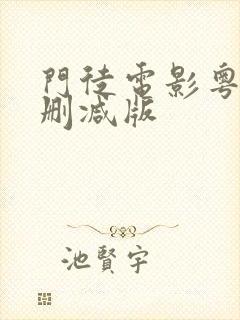 門徒電影粵
刪減版
池賢宇